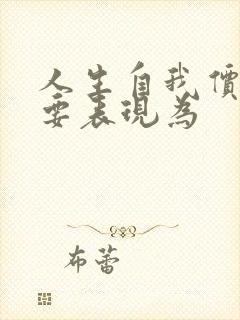 人生自我價
要表現為
布蕾